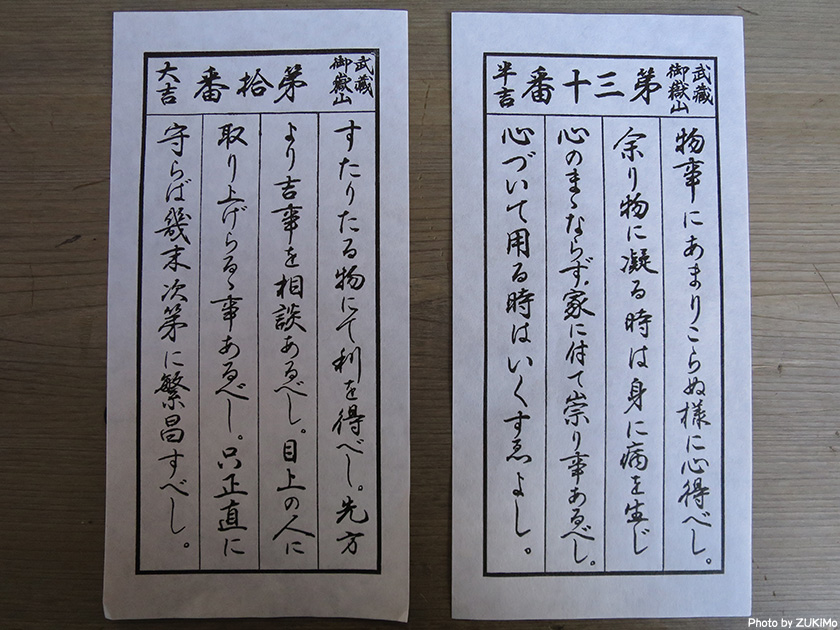 武蔵
御嶽山
第三十番
半吉
物事にあまりこらぬ様に心得べし。
余り物に凝る時は身に痛を生じ
心のまゝならず、家に付て崇り事あるべし。
心づいて用る時はいくすゑよし。
武蔵
御嶽山
第拾番
大吉
すたりたる物にて利を得べし。先方
より吉事を相談あるべし。目上の人に
取り上げらるゝ事あるべし。只正直に
守らば幾末次第に繁昌すべし。
Photo by ZUKIMo